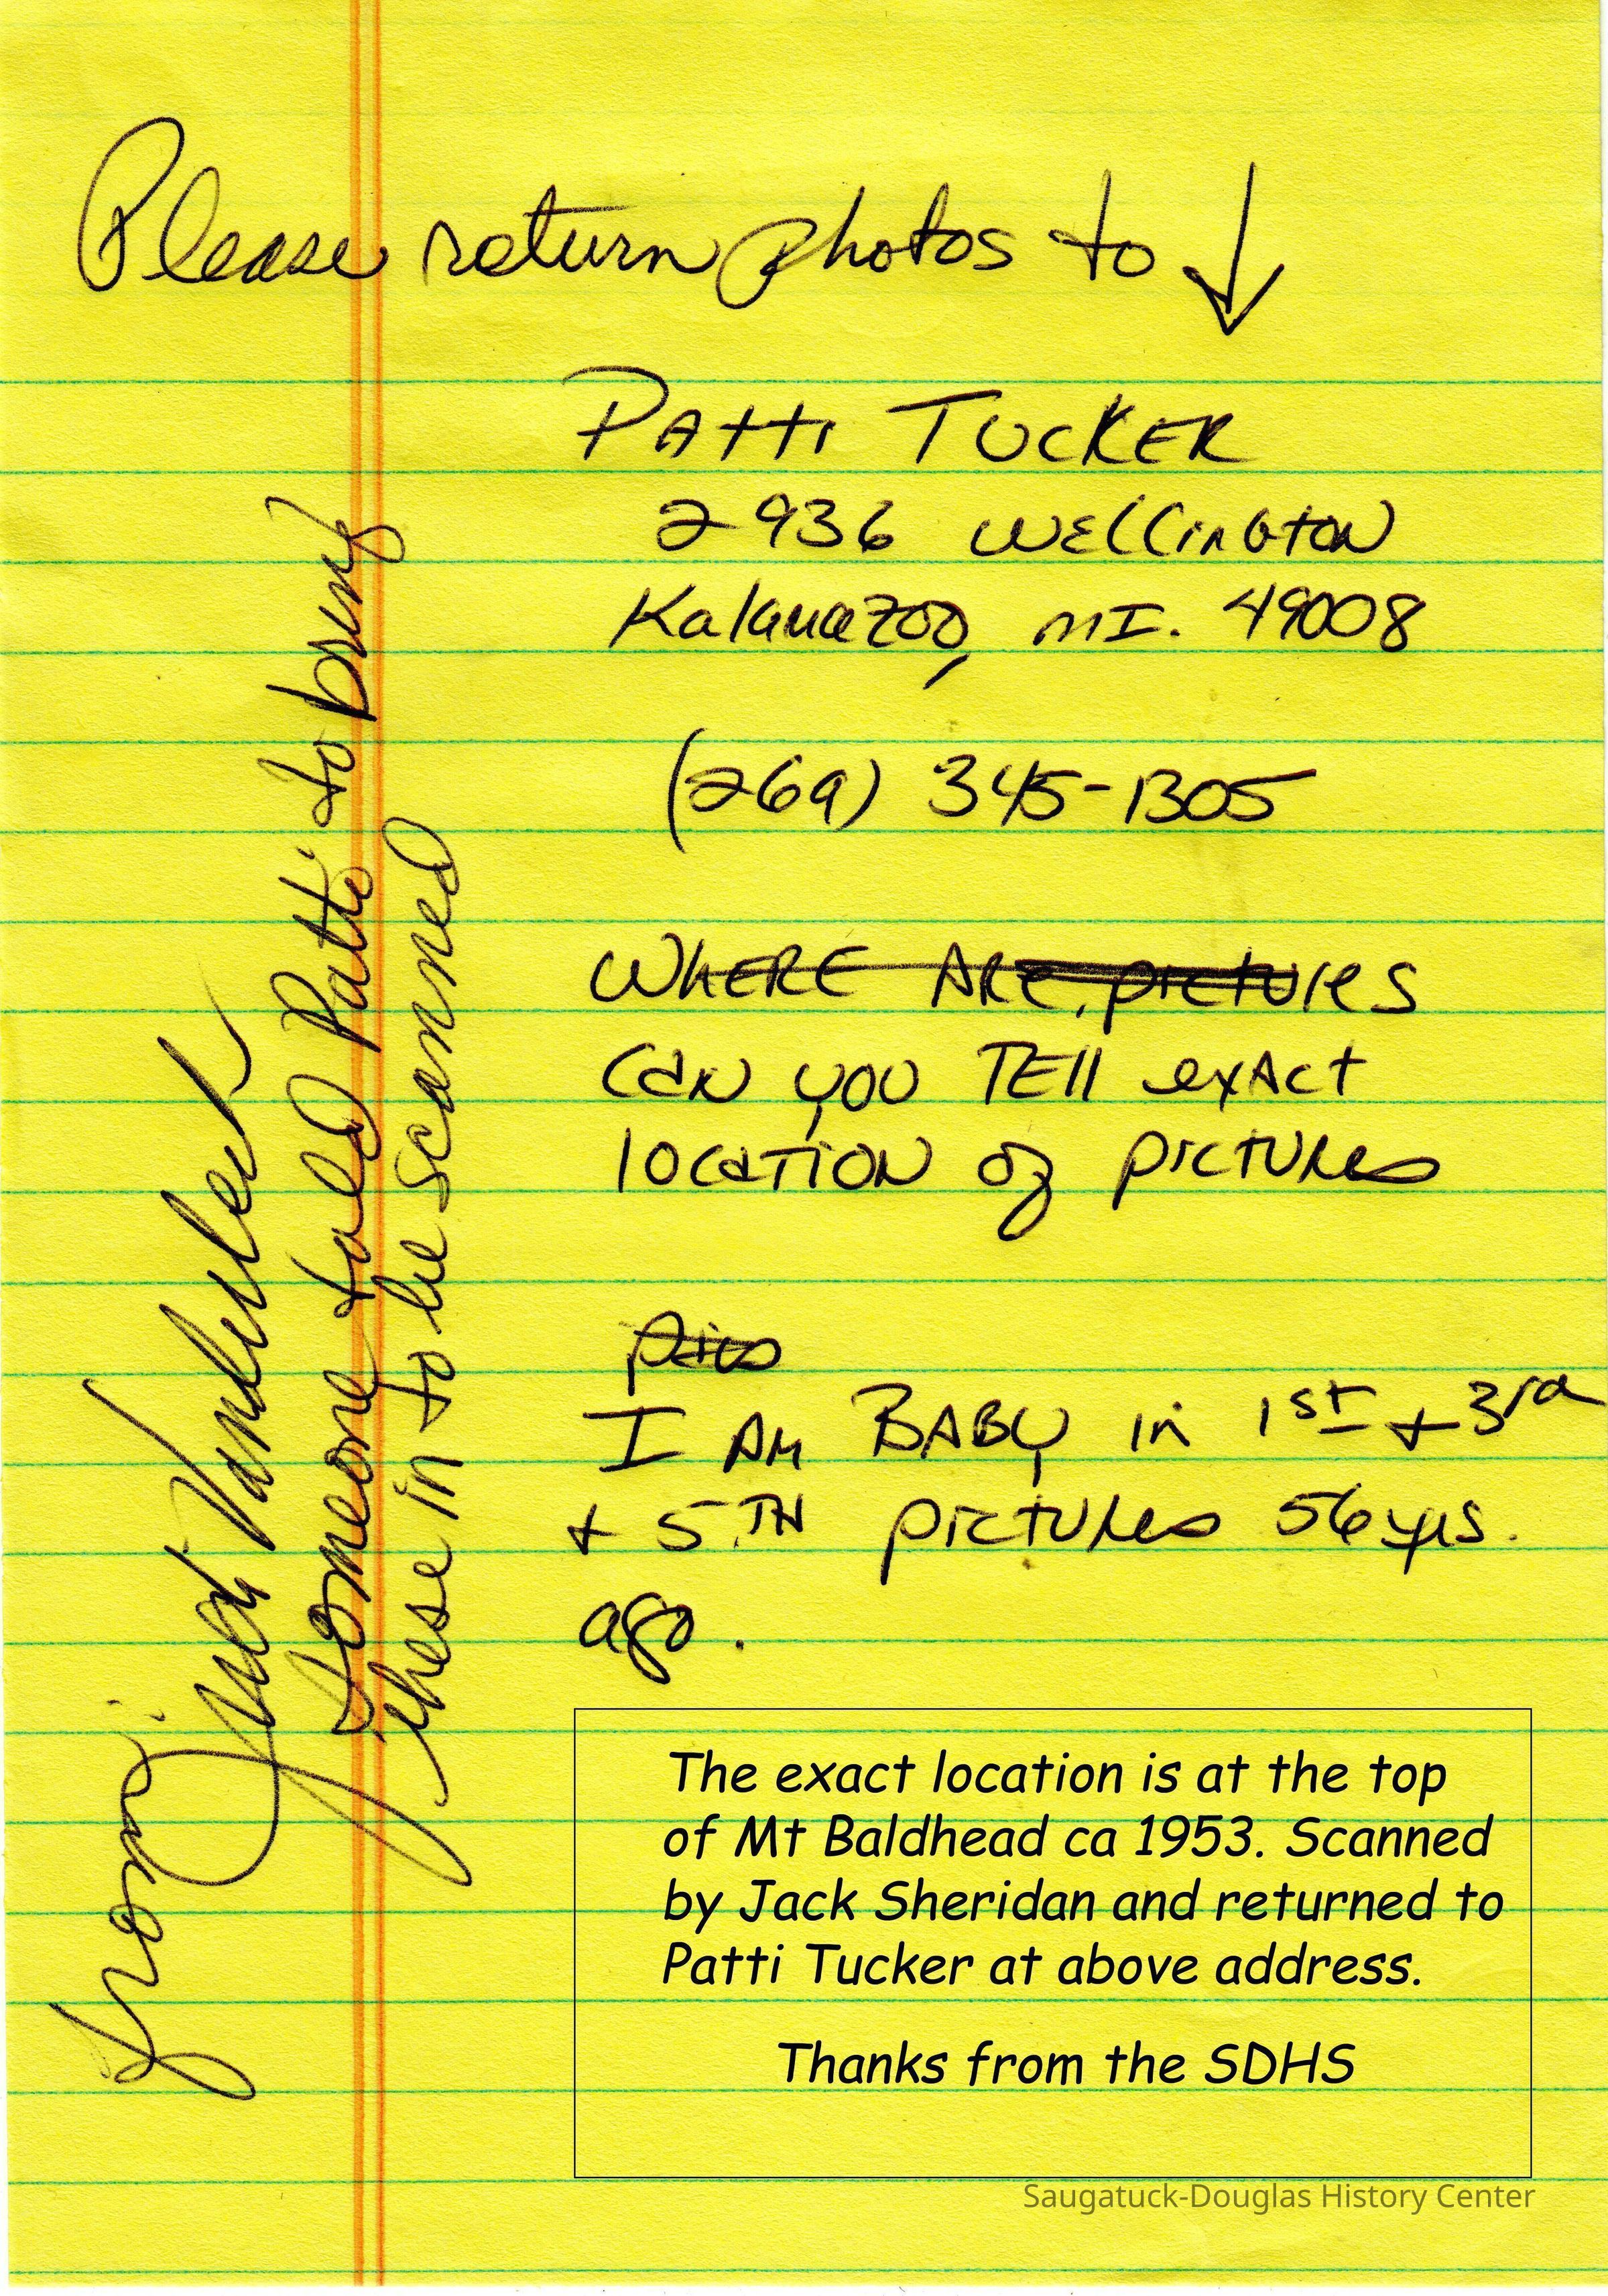 Please return photos to ↓
PAtti TUCKER
2936 WEllinGtON
Kalamazoo, MI. 49008
(269) 345-1305
WHERE ARe pictures
CAN YOU TEll exAct
locaTiON of pictures
pics
I AM BABY in 1st + 3rd
+ 5TH pictures 56 yrs.
ago.
from: Judi
Someone toled Patti to bring
these in to be scanned
The exact location is at the top
of Mt Baldhead ca 1953. Scanned
by Jack Sheridan and returned to
Patti Tucker at above address.
Thanks from the SDHS
Saugatuck-Douglas History Center